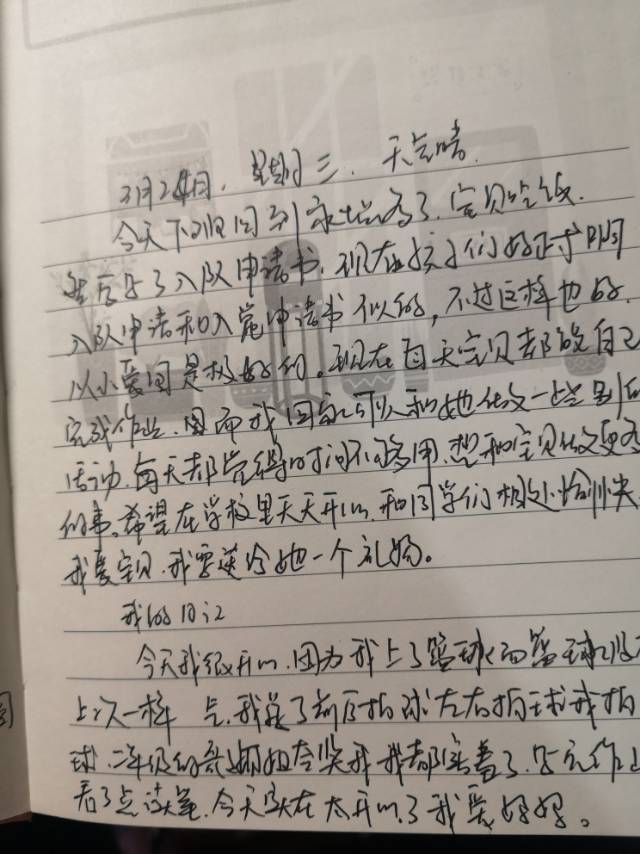 3月24日，星期三，天气晴。
今天下班回到家挺高了，宝贝吃饭，
然后写了入队申请书，现在孩子们好正式啊
入队申请和入党申请书似的，不过这样也好，
从小爱国是极好的。现在每天宝贝都能自己
完成作业，因而我回家可以和她做一些别的
活动，每天都觉得时间不够用，想和宝贝做更多
的事。希望在学校里天天开心，和同学们相处愉快
我爱宝贝，我要送给她一个礼物。
我的日记
今天我很开心，因为我上了篮球
上次一样，我练了前后拍球左右拍球
球，二年级的哥哥姐姐夸奖我
看了点读笔，今天实在太开心了我爱妈妈。